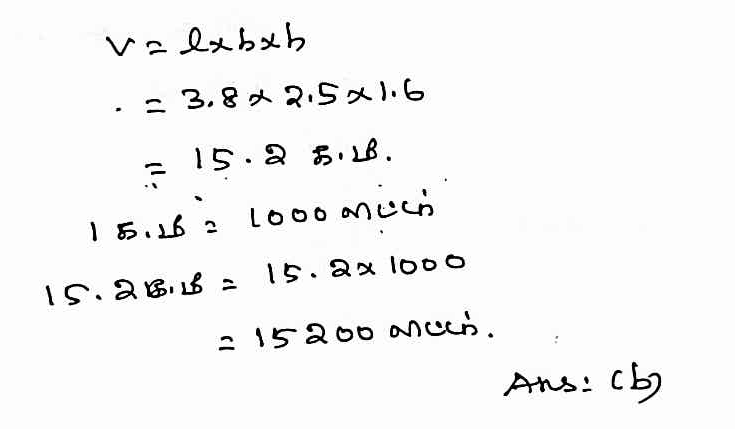 V = l×b×h
= 3.8 × 2.5 × 1.6
= 15.2 க.மீ.
1 க.மீ = 1000 லிட்டர்
15.2க.மீ = 15.2 × 1000
= 15200 லிட்டர்.
Ans: (b)